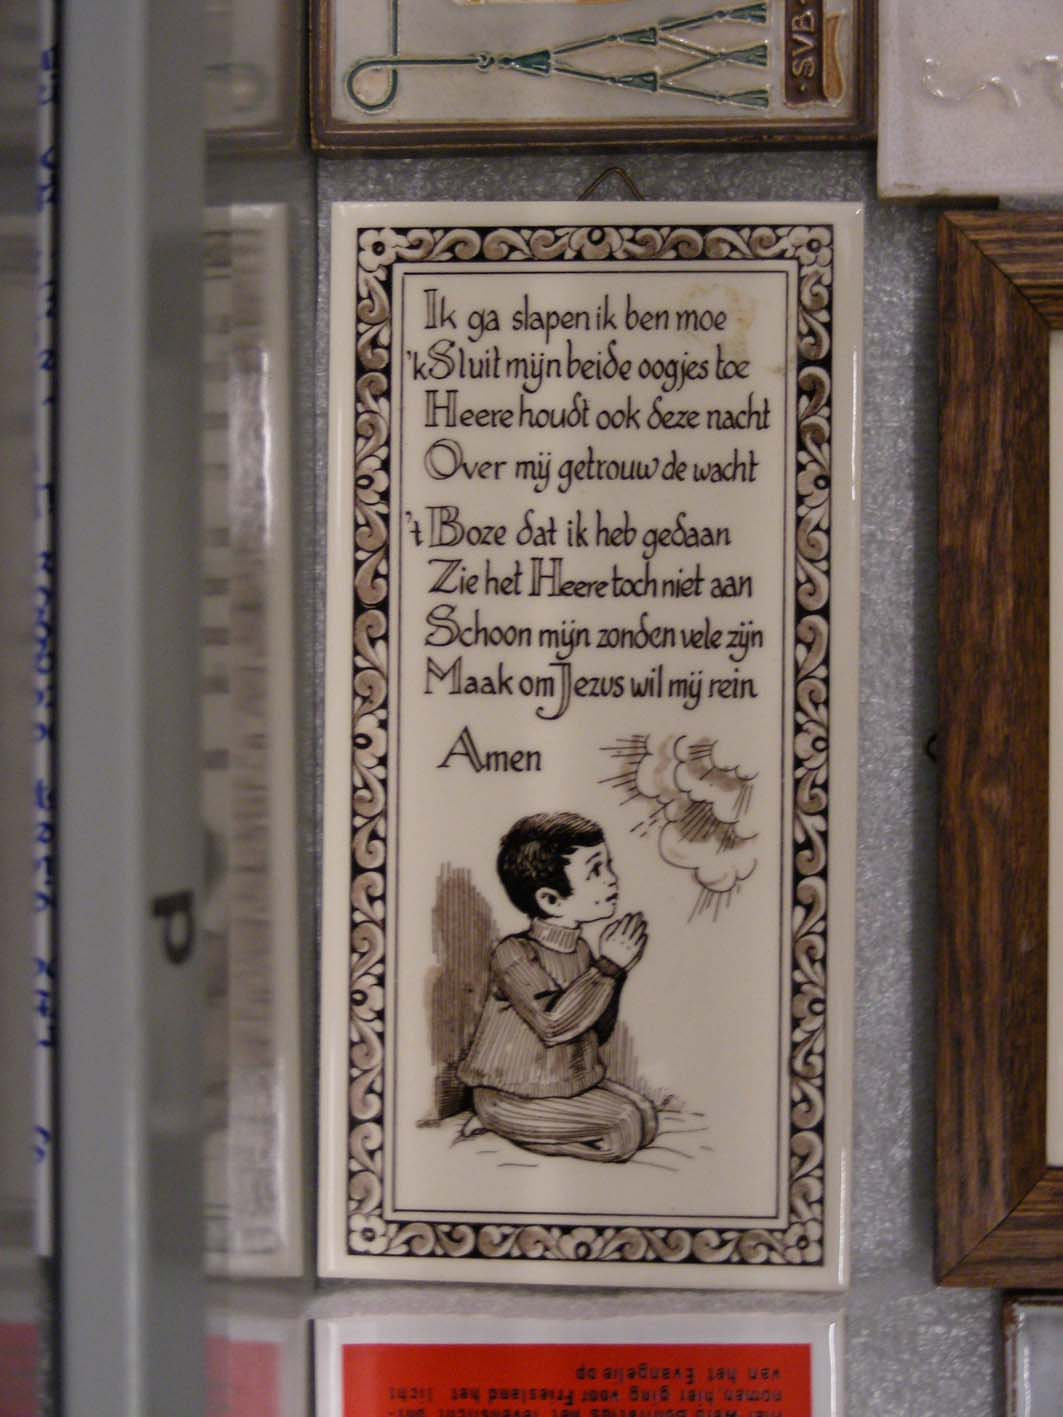 SVB
Ik ga slapen ik ben moe
'k Sluit mijn beide oogjes toe
Heere houdt ook deze nacht
Over mij getrouw de wacht
't Boze dat ik heb gedaan
Zie het Heere toch niet aan
Schoon mijn zonden vele zijn
Maak om Jezus wil mij rein
Amen
d
van het Evangelie op
nomen, hier ging voor Friesland het licht
Hier werd Bonifatius het levenslicht ont-